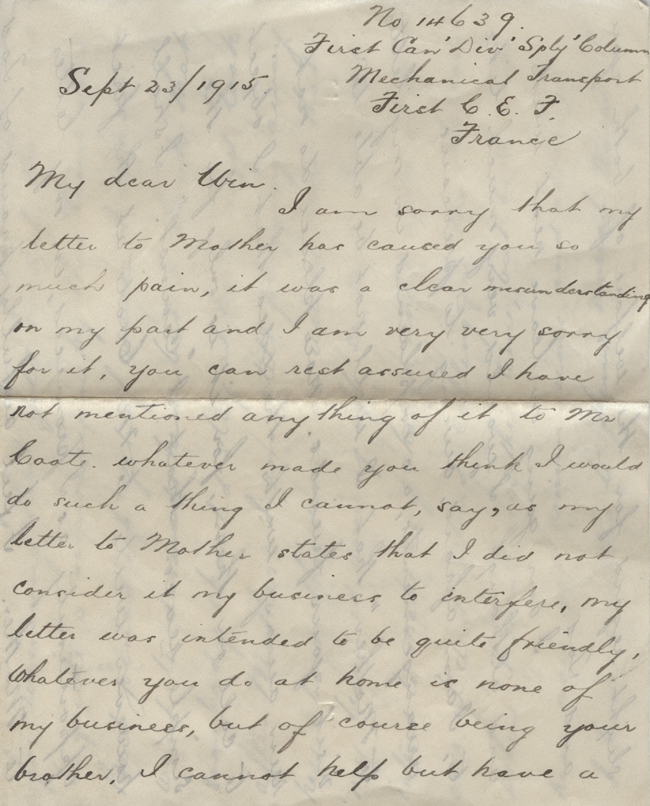 No 14639.
First Can' Div' Sply' Column
Sept 23/1915.
Mechanical Transport
First C. E. F.
France
My dear Win.
I am sorry that my
letter to Mother has caused you so
much pain, it was a clear misunderstanding
on my part and I am very very sorry
for it, you can rest assured I have
not mentioned anything of it to Mr
Coate. whatever made you think I would
do such a thing I cannot, say, as my
letter to Mother states that I did not
consider it my business to interfere, my
letter was intended to be quite friendly,
Whatever you do at home is none of
my business, but of course being your
brother, I cannot help but have a